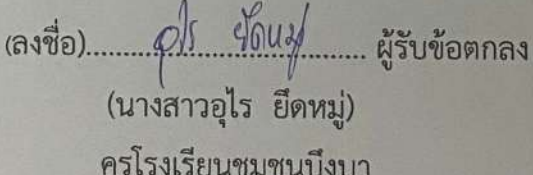 (ลงชื่อ)........อุไร ยึดหมู่........ ผู้รับข้อตกลง
(นางสาวอุไร ยึดหมู่)
ครูโรงเรียนชุมชนบึงบา